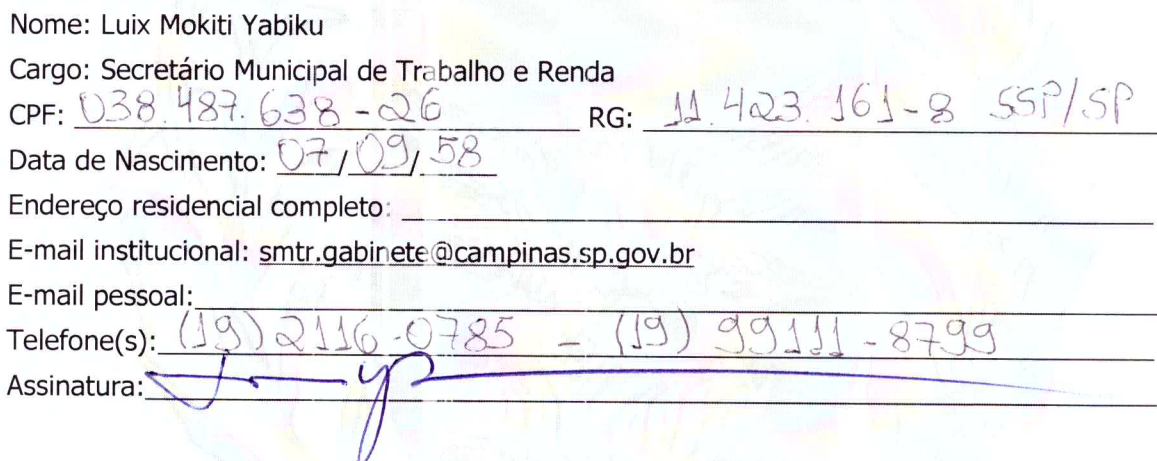 Nome: Luix Mokiti Yabiku
Cargo: Secretário Municipal de Trabalho e Renda
CPF: 038.487.638-26 RG: 11.423.161-8 SSP/SP
Data de Nascimento: 07/09/58
Endereço residencial completo:
E-mail institucional: smtr.gabinete@campinas.sp.gov.br
E-mail pessoal:
Telefone(s): (19) 2116-0785 - (19) 99111-8799
Assinatura: